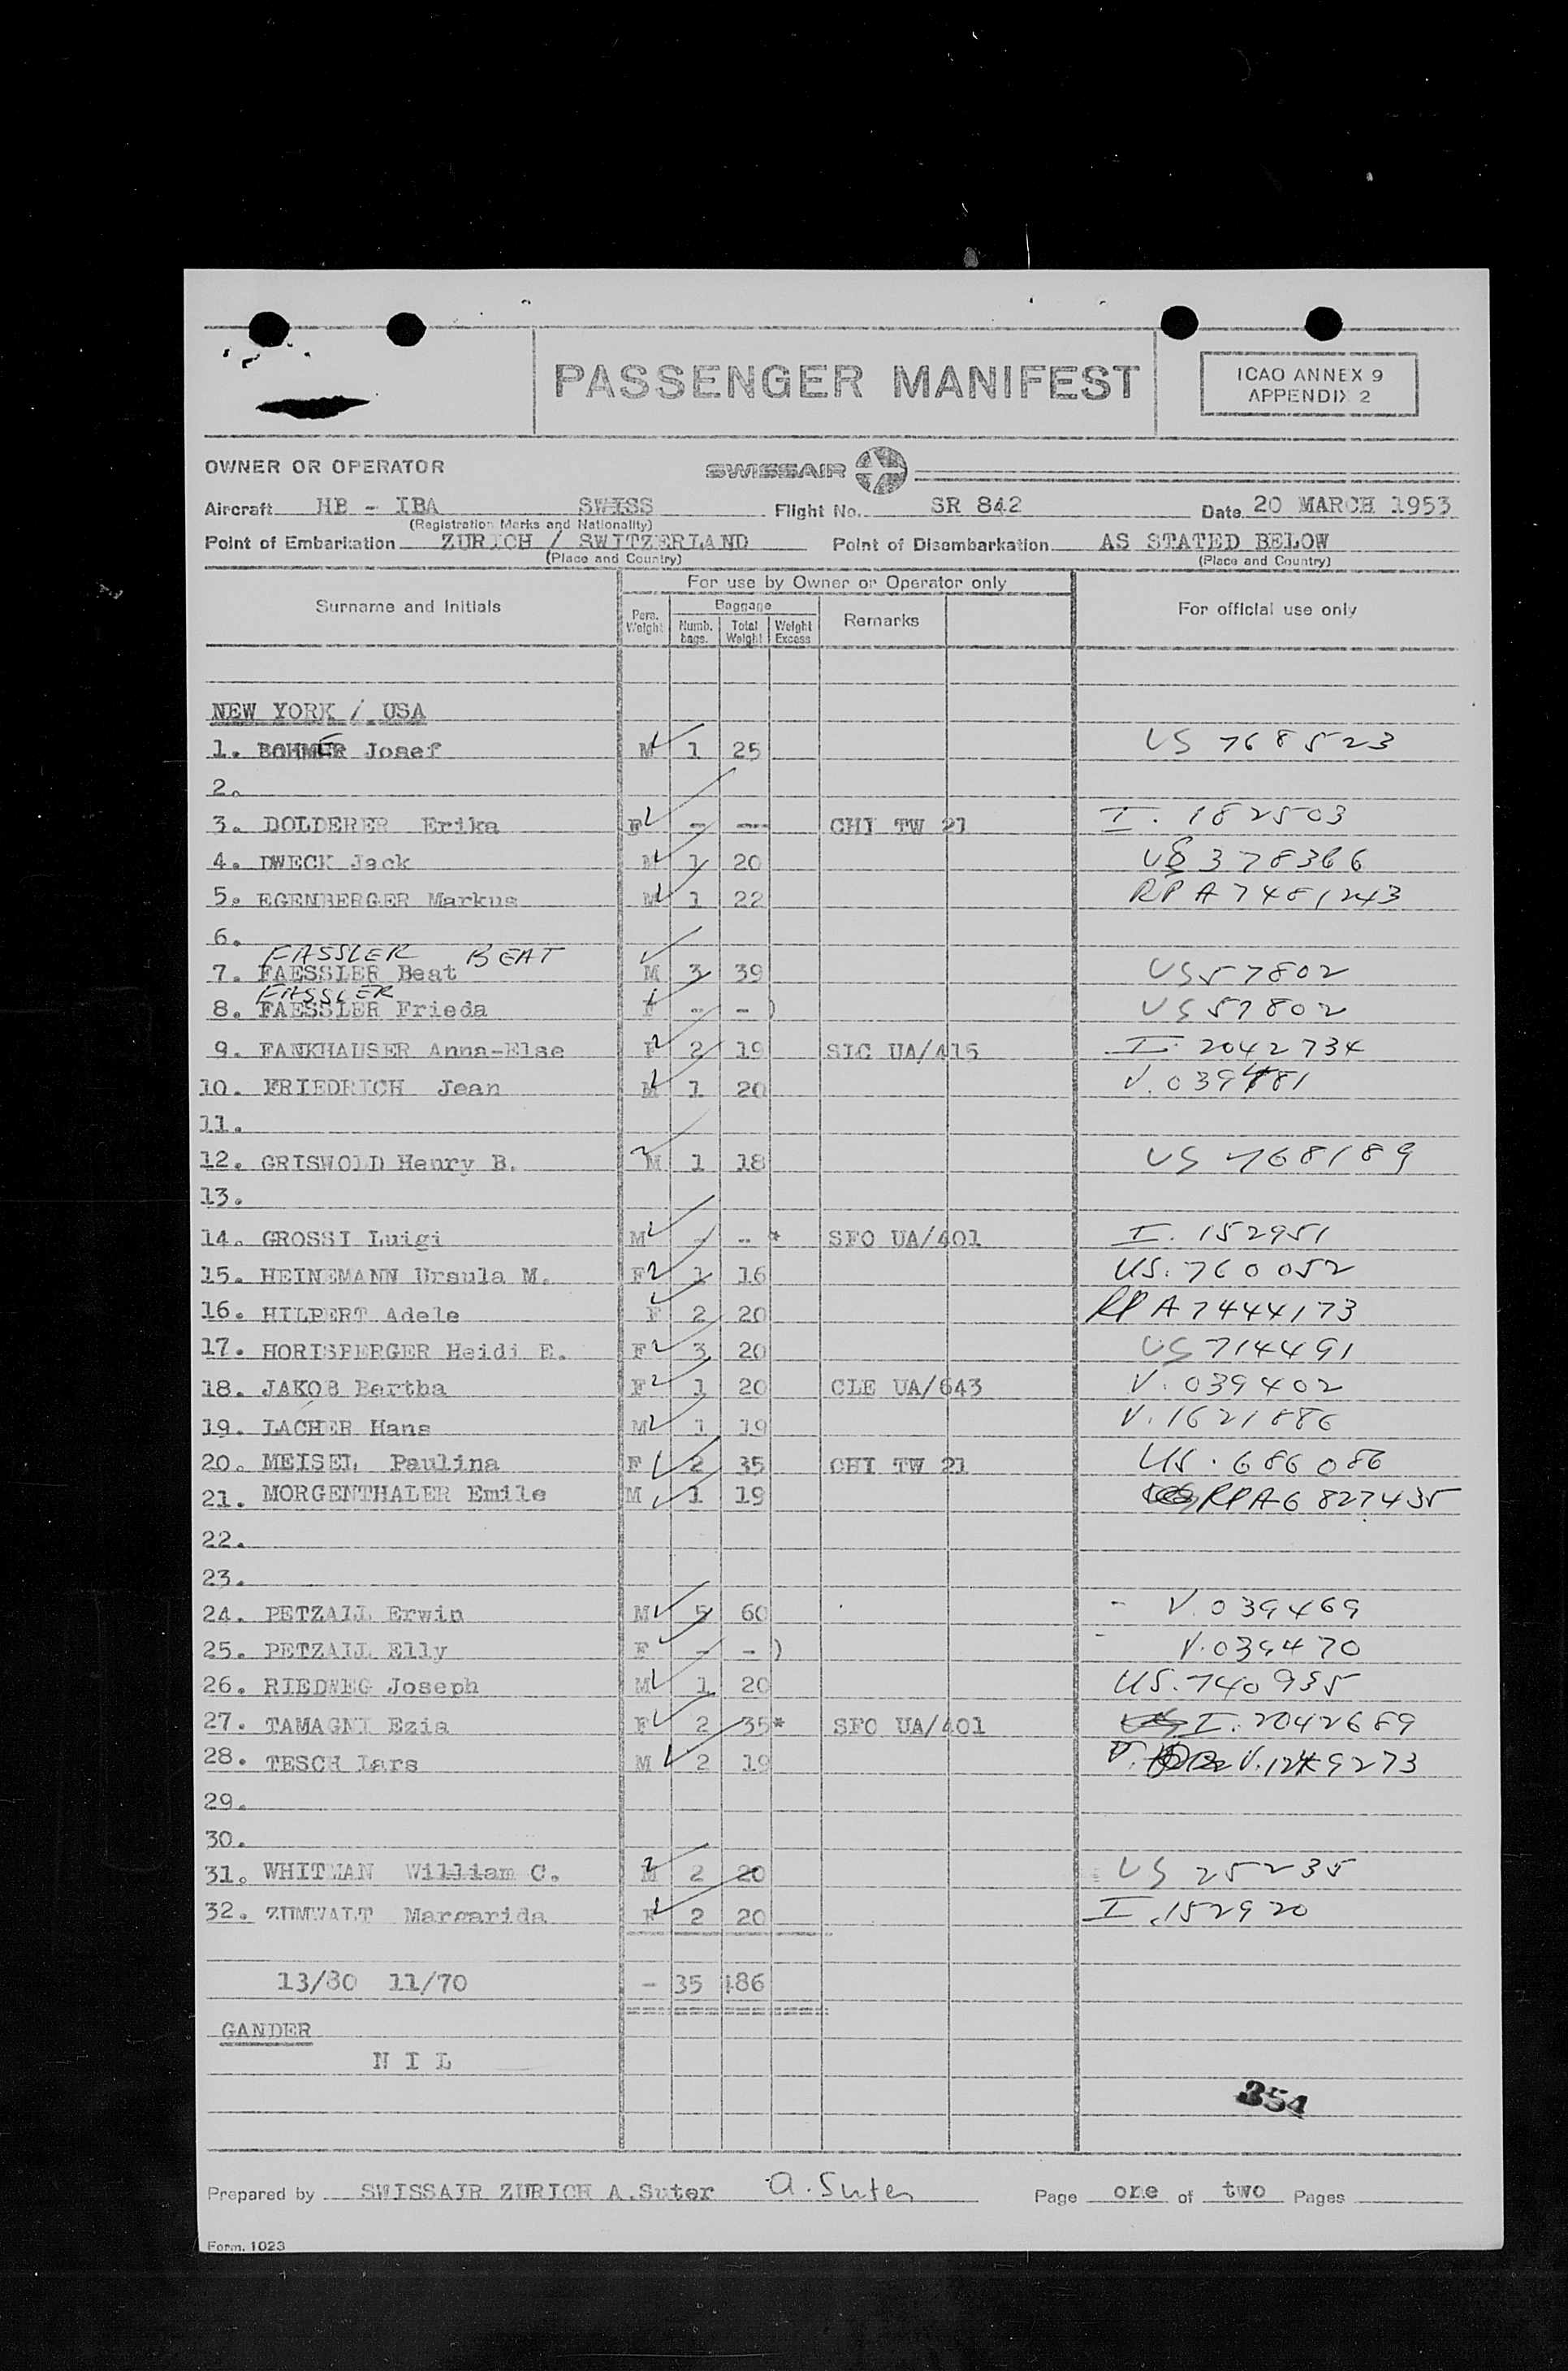 PASSENGER MANIFEST
ICAO ANNEX 9
APPENDIX 2
OWNER OR OPERATOR SWISSAIR
Aircraft HB - IBA SWISS Flight No. SR 842 Date 20 MARCH 1953
(Registration Marks and Nationality)
Point of Embarkation ZURICH / SWITZERLAND Point of Disembarkation AS STATED BELOW
(Place and Country) (Place and Country)
For use by Owner or Operator only
Surname and Initials Pers. Weight Baggage Numb. bags. Total Weight Weight Excess Remarks For official use only
NEW YORK / USA
1. BOHMER Josef M 1 25 US 768523
2.
3. DOLDERER Erika F - -- CHI TW 21 I. 182503
4. DWECK Jack M 1 20 US 378366
5. EGENBERGER Markus M 1 22 RP A7481243
6.
FASSLER BEAT
7. FAESSLER Beat M 3 39 US 57802
FASSLER
8. FAESSLER Frieda F - - ) US 57802
9. FANKHAUSER Anna-Else F 2 19 SIC UA/415 I. 2042734
10. FRIEDRICH Jean M 1 20 V. 039481
11.
12. GRISWOLD Henry B. M 1 18 US 768189
13.
14. GROSSI Luigi M - -- * SFO UA/401 I. 152951
15. HEINEMANN Ursula M. F 1 16 US. 760052
16. HILPERT Adele F 2 20 RP A7444173
17. HORISBERGER Heidi E. F 3 20 US 714491
18. JAKOB Bertha F 1 20 CLE UA/643 V. 039402
19. LACHER Hans M 1 19 V. 1621886
20. MEISEL Paulina F 2 35 CHI TW 21 US. 686086
21. MORGENTHALER Emile M 1 19 RPA6827435
22.
23.
24. PETZALL Erwin M 5 60 V. 039469
25. PETZALL Elly F - - ) V. 039470
26. RIEDWEG Joseph M 1 20 US. 740935
27. TAMAGNI Ezia F 2 35 * SFO UA/401 I. 2042689
28. TESCH Lars M 2 19 V. 1249273
29.
30.
31. WHITMAN William C. M 2 20 US 25235
32. ZUMWALT Margarida F 2 20 I. 152920
13/80 11/70 - 35 486
GANDER
N I L
354
Prepared by SWISSAIR ZURICH A.Suter A. Suter Page one of two Pages
Form. 1023